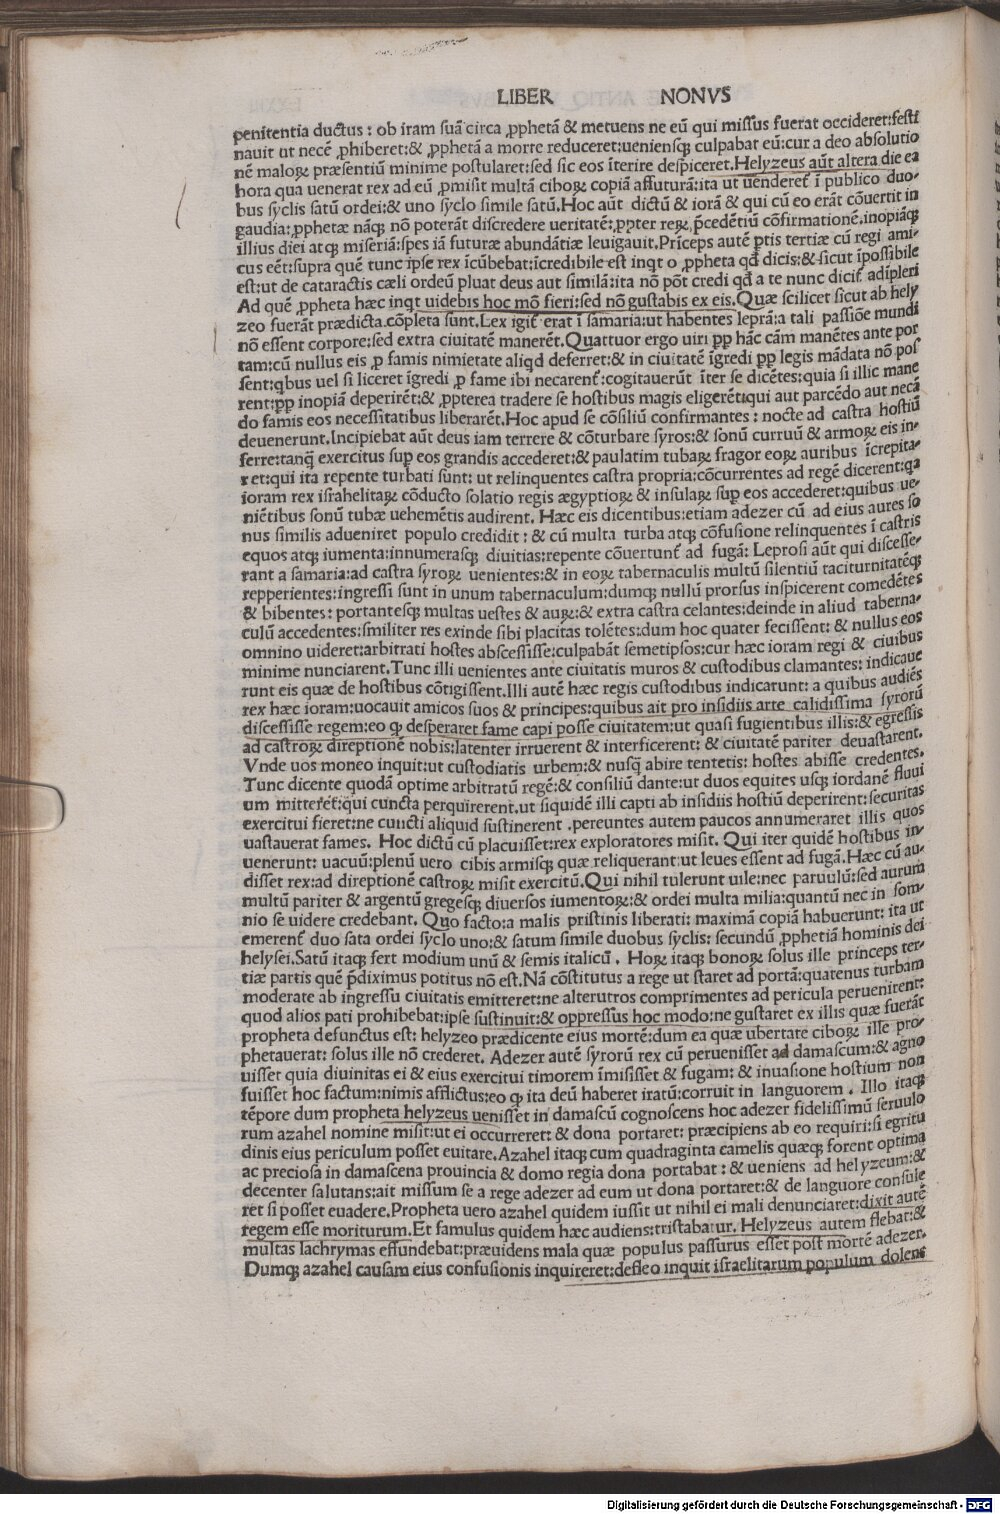 LIBER NONVS
penitentia ductus: ob iram suã circa ꝓphetã & metuens ne eũ qui missus fuerat occideret:festi
nauit ut necẽ ꝓhiberet:& ꝓphetã a morte reduceret:ueniensqꝫ culpabat eũ:cur a deo absolutio
nẽ maloꝝ præsentiũ minime postularet:sed sic eos ĩterire despiceret.Helyzeus aũt altera die ea
hora qua uenerat rex ad eũ ꝓmisit multã ciboꝝ copiã affuturã:ita ut uenderet̃ ĩ publico duo-
bus syclis satũ ordei:& uno syclo simile satũ.Hoc aũt dictũ & iorã & qui cũ eo erãt cõuertit in
gaudia:ꝓphetæ nãqꝫ nõ poterãt discredere ueritatẽ:ꝓpter reꝝ p̃cedẽtiũ cõfirmationẽ.inopiãqꝫ
illius diei atqꝫ miseriã:spes iã futuræ abundãtiæ leuigauit.Prĩceps autẽ p̃tis tertiæ cũ regi ami-
cus eẽt:supra quẽ tunc ipse rex ĩcũbebat:ĩcredibile est inqt o ꝓpheta qd̃ dicis:& sicut ĩpossibile
est:ut de cataractis cæli ordeũ pluat deus aut similã:ita nõ põt credi qd̃ a te nunc dicit̃ adĩpleri
Ad quẽ ꝓpheta hæc inqt uidebis hoc mõ fieri:sed nõ gustabis ex eis.Quæ scilicet sicut ab hely
zeo fuerãt prædicta.cõpleta sunt.Lex igit̃ erat ĩ samaria:ut habentes leprã:a tali passiõe mundi
nõ essent corpore:sed extra ciuitatẽ manerẽt.Quattuor ergo uiri ꝓp hãc cãm manẽtes ante por
tam:cũ nullus eis ꝓ famis nimietate aliqd deferret:& in ciuitatẽ ĩgredi ꝓp legis mãdata nõ pos
sent:qbus uel si liceret ĩgredi ꝓ fame ibi necarent̃:cogitauerũt ĩter se dicẽtes:quia si illic mane
rent:ꝓp inopiã deperirẽt:& ꝓpterea tradere se hostibus magis eligerẽt:qui aut parcẽdo aut necã
do famis eos necessitatibus liberarẽt.Hoc apud se cõsiliũ confirmantes: nocte ad castra hostiũ
deuenerunt.Incipiebat aũt deus iam terrere & cõturbare syros:& sonũ curruũ & armoꝝ eis in-
ferre:tanq̃ exercitus suꝑ eos grandis accederet:& paulatim tubaꝝ fragor eoꝝ auribus ĩcrepita-
ret:qui ita repente turbati sunt: ut relinquentes castra propria:cõcurrentes ad regẽ dicerent:qa
ioram rex israhelitaꝝ cõducto solatio regis ægyptioꝝ & insulaꝝ suꝑ eos accederet:quibus ue-
niẽtibus sonũ tubæ uehemẽtis audirent. Hæc eis dicentibus:etiam adezer cũ ad eius aures so
nus similis adueniret populo credidit: & cũ multa turba atqꝫ cõfusione relinquentes ĩ castris
equos atqꝫ iumenta:innumerasqꝫ diuitias:repente cõuertunt̃ ad fugã: Leprosi aũt qui discesse-
rant a samaria:ad castra syroꝝ uenientes:& in eoꝝ tabernaculis multũ silentiũ taciturnitatẽqꝫ
repperientes:ingressi sunt in unum tabernaculum:dumqꝫ nullũ prorsus inspicerent comedẽtes
& bibentes: portantesqꝫ multas uestes & auꝝ:& extra castra celantes:deinde in aliud taberna-
culũ accedentes:similiter res exinde sibi placitas tolẽtes:dum hoc quater fecissent: & nullus eos
omnino uideret:arbitrati hostes abscessisse:culpabãt semetipsos:cur hæc ioram regi & ciuibus
minime nunciarent.Tunc illi uenientes ante ciuitatis muros & custodibus clamantes: indicaue
runt eis quæ de hostibus cõtigissent.Illi autẽ hæc regis custodibus indicarunt: a quibus audiẽs
rex hæc ioram:uocauit amicos suos & principes:quibus ait pro insidiis arte calidissima syrorũ
discessisse regem:eo ꝙ desperaret fame capi posse ciuitatem:ut quasi fugientibus illis:& egressis
ad castroꝝ direptionẽ nobis:latenter irruerent & interficerent: & ciuitatẽ pariter deuastarent.
Vnde uos moneo inquit:ut custodiatis urbem:& nusq̃ abire tentetis: hostes abisse credentes.
Tunc dicente quodã optime arbitratũ regẽ:& consiliũ dante:ut duos equites usqꝫ iordanẽ fluui
um mitteret:qui cuncta perquirerent.ut siquidẽ illi capti ab insidiis hostiũ deperirent:securitas
exercitui fieret:ne cuncti aliquid sustinerent .pereuntes autem paucos annumeraret illis quos
uastauerat fames. Hoc dictũ cũ placuisset:rex exploratores misit. Qui iter quidẽ hostibus in-
uenerunt: uacuũ:plenũ uero cibis armisqꝫ quæ reliquerant:ut leues essent ad fugã.Hæc cũ au-
disset rex:ad direptionẽ castroꝝ misit exercitũ.Qui nihil tulerunt uile:nec paruulũ:sed aurum
multũ pariter & argentũ gregesqꝫ diuersos iumentoꝝ:& ordei multa milia:quantũ nec in som-
nio se uidere credebant. Quo facto:a malis pristinis liberati: maximã copiã habuerunt: ita ut
emerent̃ duo sata ordei syclo uno:& satum simile duobus syclis: secundũ ꝓphetiã hominis dei
helysei.Satũ itaqꝫ fert modium unũ & semis italicũ. Hoꝝ itaqꝫ bonoꝝ solus ille princeps ter-
tiæ partis quẽ p̃diximus potitus nõ est.Nã cõstitutus a rege ut staret ad portã:quatenus turbam
moderate ab ingressu ciuitatis emitteret:ne alterutros comprimentes ad pericula peruenirent:
quod alios pati prohibebat:ipse sustinuit:& oppressus hoc modo:ne gustaret ex illis quæ fuerãt
propheta defunctus est: helyzeo prædicente eius mortẽ:dum ea quæ ubertate ciboꝝ ille pro-
phetauerat: solus ille nõ crederet. Adezer autẽ syrorũ rex cũ peruenisset ad damascum:& agno
uisset quia diuinitas ei & eius exercitui timorem ĩmisisset & fugam: & inuasione hostium non
fuisset hoc factum:nimis afflictus:eo ꝙ ita deũ haberet iratũ:corruit in languorem. Illo itaqꝫ
tẽpore dum propheta helyzeus uenisset in damascũ cognoscens hoc adezer fidelissimũ seruulo
rum azahel nomine misit:ut ei occurreret: & dona portaret: præcipiens ab eo requiri:si egritu
dinis eius periculum posset euitare.Azahel itaqꝫ cum quadraginta camelis quæqꝫ forent optima
ac preciosa in damascena prouincia & domo regia dona portabat: & ueniens ad helyzeum:&
decenter salutans:ait missum se a rege adezer ad eum ut dona portaret:& de languore consule
ret si posset euadere.Propheta uero azahel quidem iussit ut nihil ei mali denunciaret:dixit autẽ
regem esse moriturum.Et famulus quidem hæc audiens:tristabatur. Helyzeus autem flebat:&
multas lachrymas effundebat:præuidens mala quæ populus passurus esset post mortẽ adezer.
Dumqꝫ azahel causam eius confusionis inquireret:defleo inquit israelitarum populum dolens
Digitalisierung gefördert durch die Deutsche Forschungsgemeinschaft - DFG